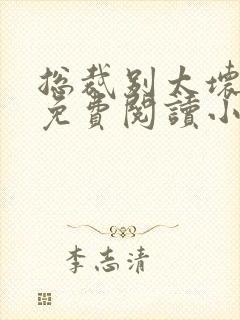 总裁别太壞
免費閱讀小
李志清